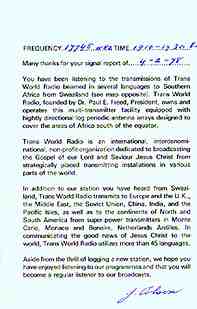 FREQUENCY 17745 KHz TIME
Many thanks for your signal report of 4-2-78
You have been listening to the transmissions of Trans
World Radio beamed in several languages to Southern
Africa from Swaziland (see map opposite). Trans World
Radio, founded by Dr. Paul E. Freed, President, owns and
operates this multi-transmitter facility equipped with
highly directional log periodic antenna arrays designed to
cover the areas of Africa south of the equator.
Trans World Radio is an international, interdenomi-
national, non-profit organization dedicated to broadcasting
the Gospel of our Lord and Saviour Jesus Christ from
strategically placed transmitting installations in various
parts of the world.
In addition to our station you have heard from Swazi-
land, Trans World Radio transmits to Europe and the U.K.,
the Middle East, the Soviet Union, China, India, and the
Pacific Isles, as well as to the continents of North and
South America from super power transmitters in Monte
Carlo, Monaco and Bonaire, Netherlands Antilles. In
communicating the good news of Jesus Christ to the
world, Trans World Radio utilizes more than 45 languages.
Aside from the thrill of logging a new station, we hope you
have enjoyed listening to our programmes and that you will
become a regular listener to our broadcasts.